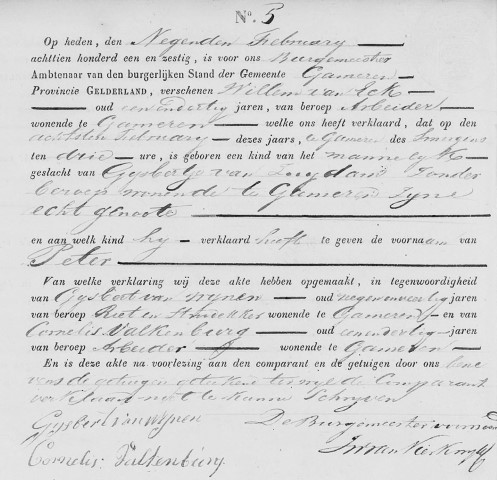 No. 5
Op heden, den Negenden February
achttien honderd een en zestig, is voor ons Burgemeester
Ambtenaar van den burgerlijken Stand der Gemeente Gameren
Provincie GELDERLAND, verschenen Willem van Eck
oud een en dertig jaren, van beroep Arbeider
wonende te Gameren welke ons heeft verklaard, dat op den
achtsten February dezes jaars, te Gameren des smorgens
ten drie ure, is geboren een kind van het mannelyk
geslacht van Gysbertje van Zonder
beroep wonende te Gameren zyne
echtgenoote
en aan welk kind hy verklaard heeft te geven de voornaam van
Peter
Van welke verklaring wij deze akte hebben opgemaakt, in tegenwoordigheid
van Gysbert van Wynen oud negenenveertig jaren
van beroep Riet en wonende te Gameren en van
Cornelis Valkenburg oud een en dertig jaren
van beroep Arbeider wonende te Gameren
En is deze akte na voorlezing aan den comparant en de getuigen door ons bene
vens de getuigen geteekend terwyl de Comparant
verklaard niet te kunnen Schryven
Gysbert van Wynen De Burgemeester voornoemd
Cornelis Valkenburg